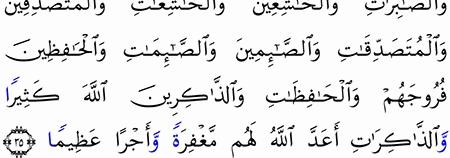 وَالصَّٰبِرَٰتِ وَالْخَٰشِعِينَ وَالْخَٰشِعَٰتِ وَالْمُتَصَدِّقِينَ
وَالْمُتَصَدِّقَٰتِ وَالصَّٰٓئِمِينَ وَالصَّٰٓئِمَٰتِ وَالْحَٰفِظِينَ
فُرُوجَهُمْ وَالْحَٰفِظَٰتِ وَالذَّٰكِرِينَ اللَّهَ كَثِيرًا
وَّالذَّٰكِرَٰتِ أَعَدَّ اللَّهُ لَهُم مَّغْفِرَةً وَّأَجْرًا عَظِيمًا ٣٥